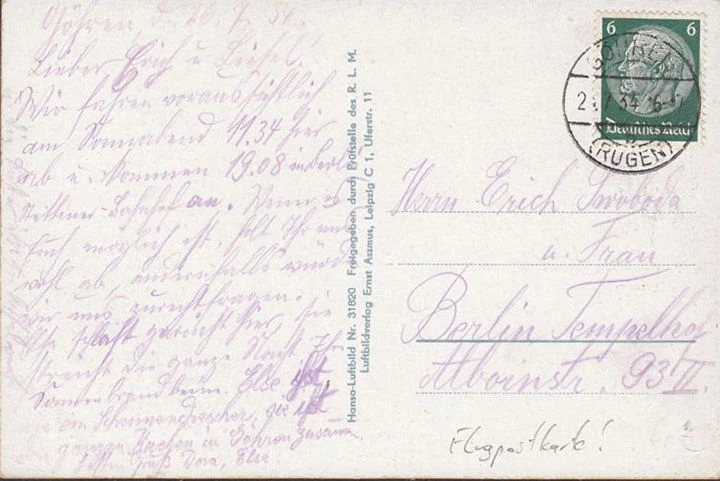 Göhren, d. 26.7.34.
Lieber Erich u. Liesel!
Wir fahren voraussichtlich
am Sonnabend 11.34 hier
ab u. kommen 19.08 in Berl.
Stettiner-Bahnhof an. Wenn es
Euch möglich ist, holt Ihr uns
wohl ab, andernfalls würden
wir uns zurechtfragen.
schläft hier, sie
die ganze Nacht
Sonnenbrand Else ißt
wie ein Scheunendrescher, sie ißt
die ganze Kuchen in Göhren zusam.
Gruß Dora, Else.
Hansa-Luftbild Nr. 31820 Freigegeben durch Prüfstelle des R. L. M.
Luftbildverlag Ernst Assmus, Leipzig C 1, Uferstr. 11
6 6
Deutsches Reich
GÖHREN
34 16-
(RÜGEN)
Herrn Erich Swoboda
u. Frau
Berlin Tempelhof
Alboinstr. 93 II.
Flugpostkarte!